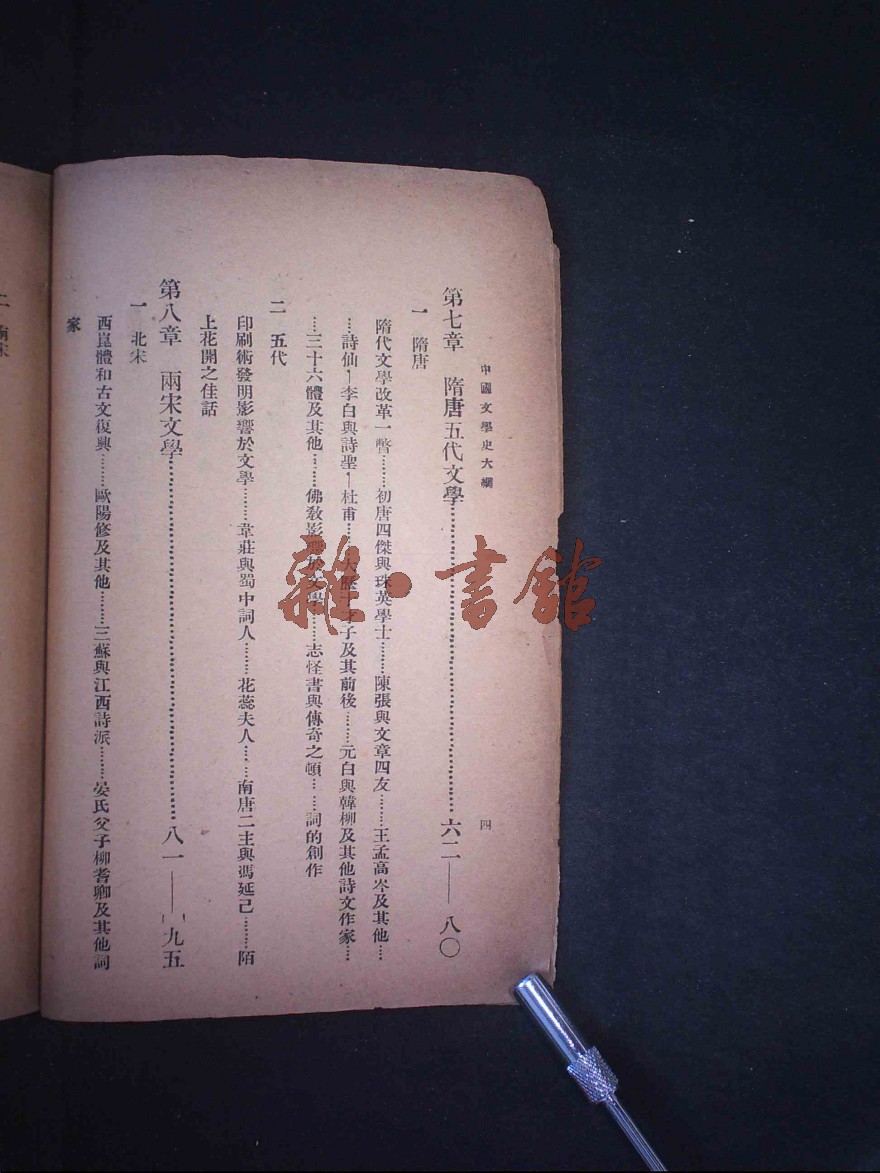 中國文學史大綱
四
第七章　隋唐五代文學……………………六二——八〇
一　隋唐
隋代文學改革一瞥………初唐四傑與珠英學士………陳張與文章四友………王孟高岑及其他……
…詩仙—李白與詩聖—杜甫……大歷十才子及其前後………元白與韓柳及其他詩文作家……
…三十六體及其他………佛教影響於文學………志怪書與傳奇之頓………詞的創作
二　五代
印刷術發明影響於文學………韋莊與蜀中詞人………花蕊夫人………南唐二主與馮延己………陌
上花開之佳話
第八章　兩宋文學……………………八一——九五
一　北宋
西崑體和古文復興………歐陽修及其他………三蘇與江西詩派………晏氏父子柳耆卿及其他詞
家
二　南宋
雜·書館